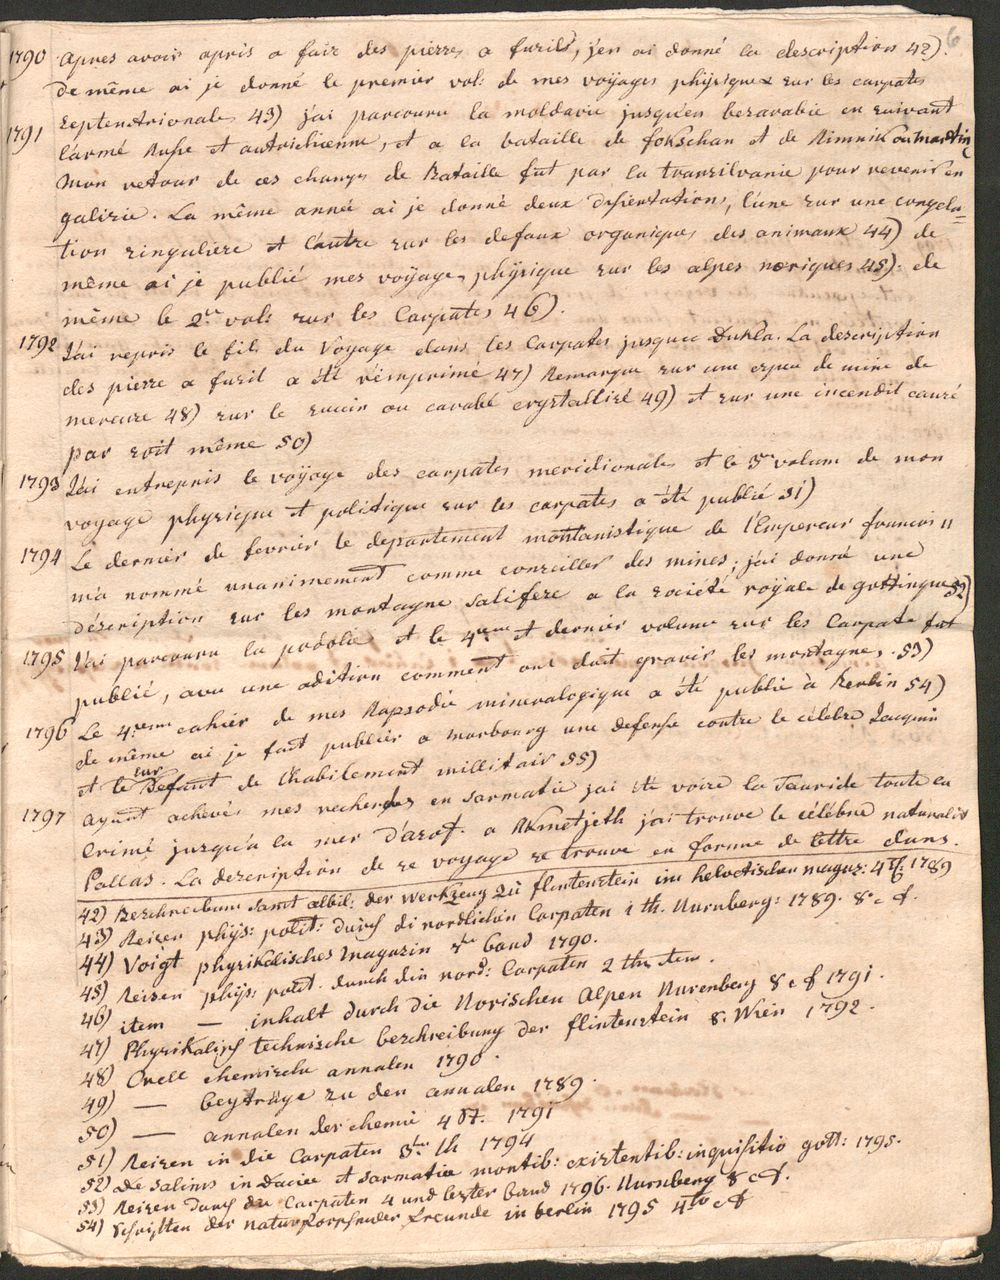 6
1790 apres avoir apris a fair des pierres a fusils, j'en ai donné la description 42).
De même ai je donné le premier vol: de mes voyages physiques sur les carpates
septentrionales 43) j'ai parcouru la moldavie jusqu'en bezarabie en suivant
1791 l'armé Russe et autrichienne, et a la bataille de fokschan et de Rimnik ou martin
Mon retour de ces champs de Bataille fut par la transilvanie pour revenir en
galizie. La même année ai je donné deux dissertations, l'une sur une congela-
tion singuliere et l'autre sur les defaux organiques des animaux 44) de
même ai je publié mes voyages physique sur les alpes noriques 45). de
même le 2d vol: sur les Carpates 46).
1792 J'ai repris le fils du Voyage dans les Carpates jusque a Dukla. La description
des pierre a fusil a été réimprimé 47) Remarque sur une espece de mine de
mercure 48) sur le succin ou carabé crystallisé 49) et sur une incendit causé
par soit même 50)
1793 J'ai entrepris le voyage des carpates meridionales et le 3me volum de mon
voyage physique et politique sur les carpates a été publié 51)
1794 Le dernier de fevrier le departement montanistique de l'Empereur francois II
m'a nommé unanimement comme conseiller des mines; j'ai donné une
déscription sur les montagne salifere a la société royale de gottingue 52)
1795 J'ai parcouru la podolie et le 4eme et dernier volume sur les Carpate fut
publié, avec une adition comment on doit gravir les montagnes. 53)
1796 Le 4eme cahier de mes Rapsodie mineralogique a été publie à Berlin 54)
de même ai je fait publier a marbourg une defense contre le célébre Jacquin
et le sur Defaut de l'habilement millitair 55)
1797 ayant achevés mes recherches en sarmatie j'ai été voire la Tauride toute la
Crimé jusqu'a la mer d'azof. a Akmetjeth j'ai trouve le célébre naturalist
Pallas. La description de se voyage se trouve en forme de lettre dans.
42) Beschreibung samt abbil: der Werkzeug zu flintenstein im helvetischen magaz: 4 1789
43) Reisen phys: polit: durch di nordlichen Carpaten 1 th. Nurnberg: 1789. 8° c f.
44) Voigt physikalisches Magazin band 1790.
45) Reisen phys: polit. durch die nord: Carpaten 2 th
46) item — inhalt durch die Norischen Alpen Nurenberg 8 c f 1791.
47) Physikalisch technische beschreibung der flintenstein 8. Wien 1792.
48) Crell chemische annalen 1790.
49) — beyträge zu den annalen 1789.
50) — annalen der chemie 4 St. 1791
51) Reisen in die Carpaten 3ter th 1794
52) de salinis in daciae et sarmatiae montib: existentib: inquisitio gott: 1795.
53) Reisen durch die Carpaten 4 und lezter band 1796. Nurnberg 8 c f.
54) Schriften der naturforschender freunde in berlin 1795 4to c f